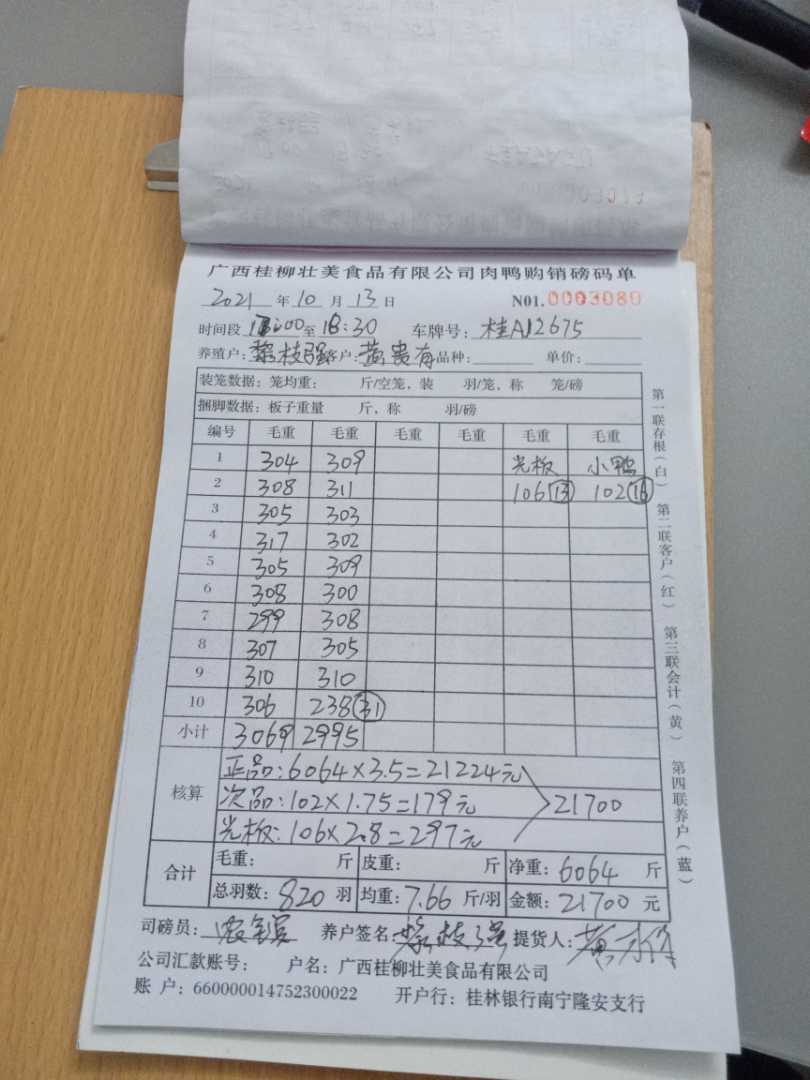 广西桂柳壮美食品有限公司肉鸭购销磅码单
2021 年 10 月 13 日 N01.0003080
时间段 :00至 18:30 车牌号: 桂A12675
养殖户: 黎枝强 客户: 黄贵有 品种: 单价:
装笼数据: 笼均重: 斤/空笼, 装 羽/笼, 称 笼/磅
捆脚数据: 板子重量 斤, 称 羽/磅
编号 毛重 毛重 毛重 毛重 毛重 毛重
1 304 309 光板 小鸭
2 308 311 106 13 102 16
3 305 303
4 317 302
5 305 309
6 308 300
7 299 308
8 307 305
9 310 310
10 306 238 31
小计 3069 2995
核算
正品: 6064×3.5=21224元
次品: 102×1.75=179元 21700
光板: 106×2.8=297元
合计
毛重: 斤 皮重: 斤 净重: 6064 斤
总羽数: 820 羽 均重: 7.66 斤/羽 金额: 21700 元
司磅员: 养户签名: 黎枝强 提货人: 黄
公司汇款账号: 户名: 广西桂柳壮美食品有限公司
账 户: 660000014752300022 开户行: 桂林银行南宁隆安支行
第一联存根(白) 第二联客户(红) 第三联会计(黄) 第四联养户(蓝)